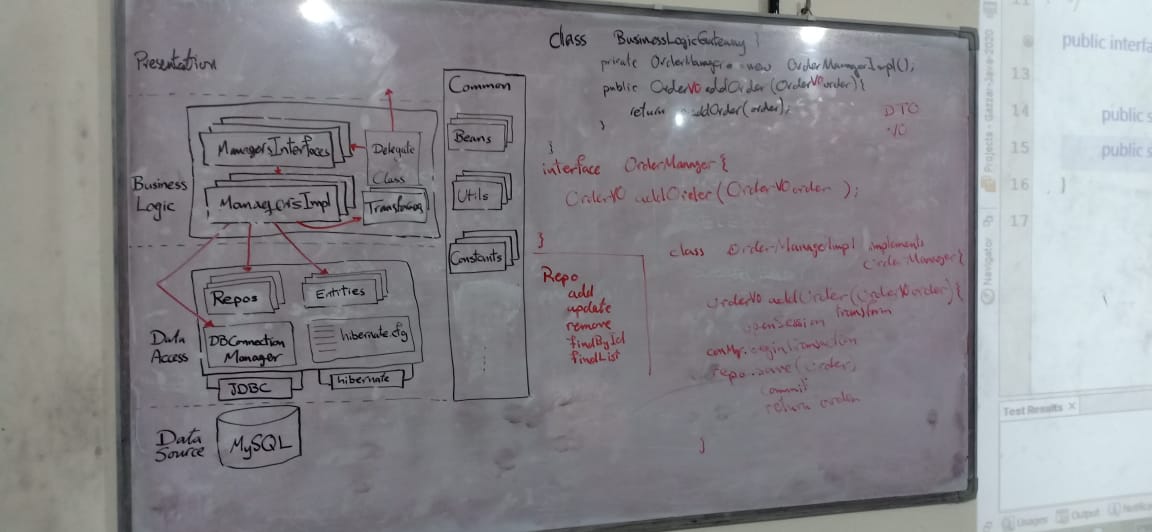 Presentation
Business
Logic
ManagersInterfaces
ManagersImpl
Delegate
Class
Data
Access
Repos
Entities
DBConnection
Manager
hibernate.cfg
JDBC
hibernate
Data
Source
MySQL
Common
Beans
Utils
Constants
class BusinessLogicGateway {
private OrderManager = new OrderManagerImpl();
public OrderVO addOrder (OrderVO order){
return addOrder(order);
}
}
DTO
VO
interface OrderManager {
OrderVO addOrder (OrderVO order );
}
Repo
add
update
remove
findById
findList
class OrderManagerImpl implements
OrderManager {
OrderVO addOrder (OrderVO order) {
transform
openSession
repo.save (order)
commit
return order
}
public interfa
13
14
public s
15
public s
16
}
17
Projects - Gazzar-Java-2020
Navigator
Test Results ×
Usages
Output